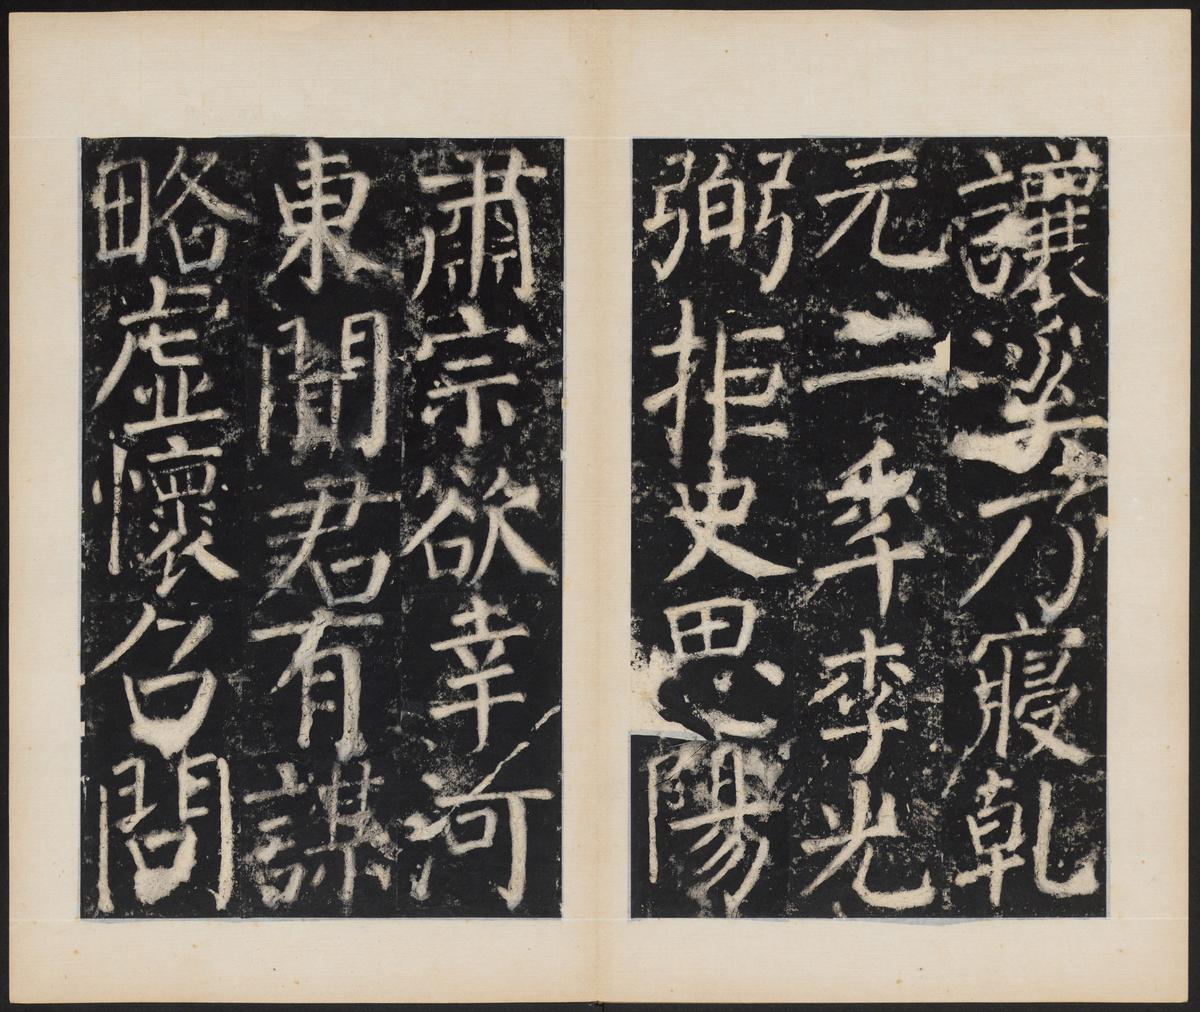 讓溪乃寢乾
元二秊李光
弼拒史思陽
肅宗欲幸河
東聞君有謀
略虛懷召問